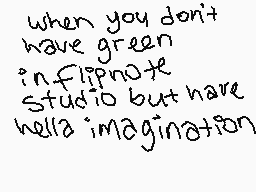 when you don't
have green
in flipnote
studio but have
hella imagination